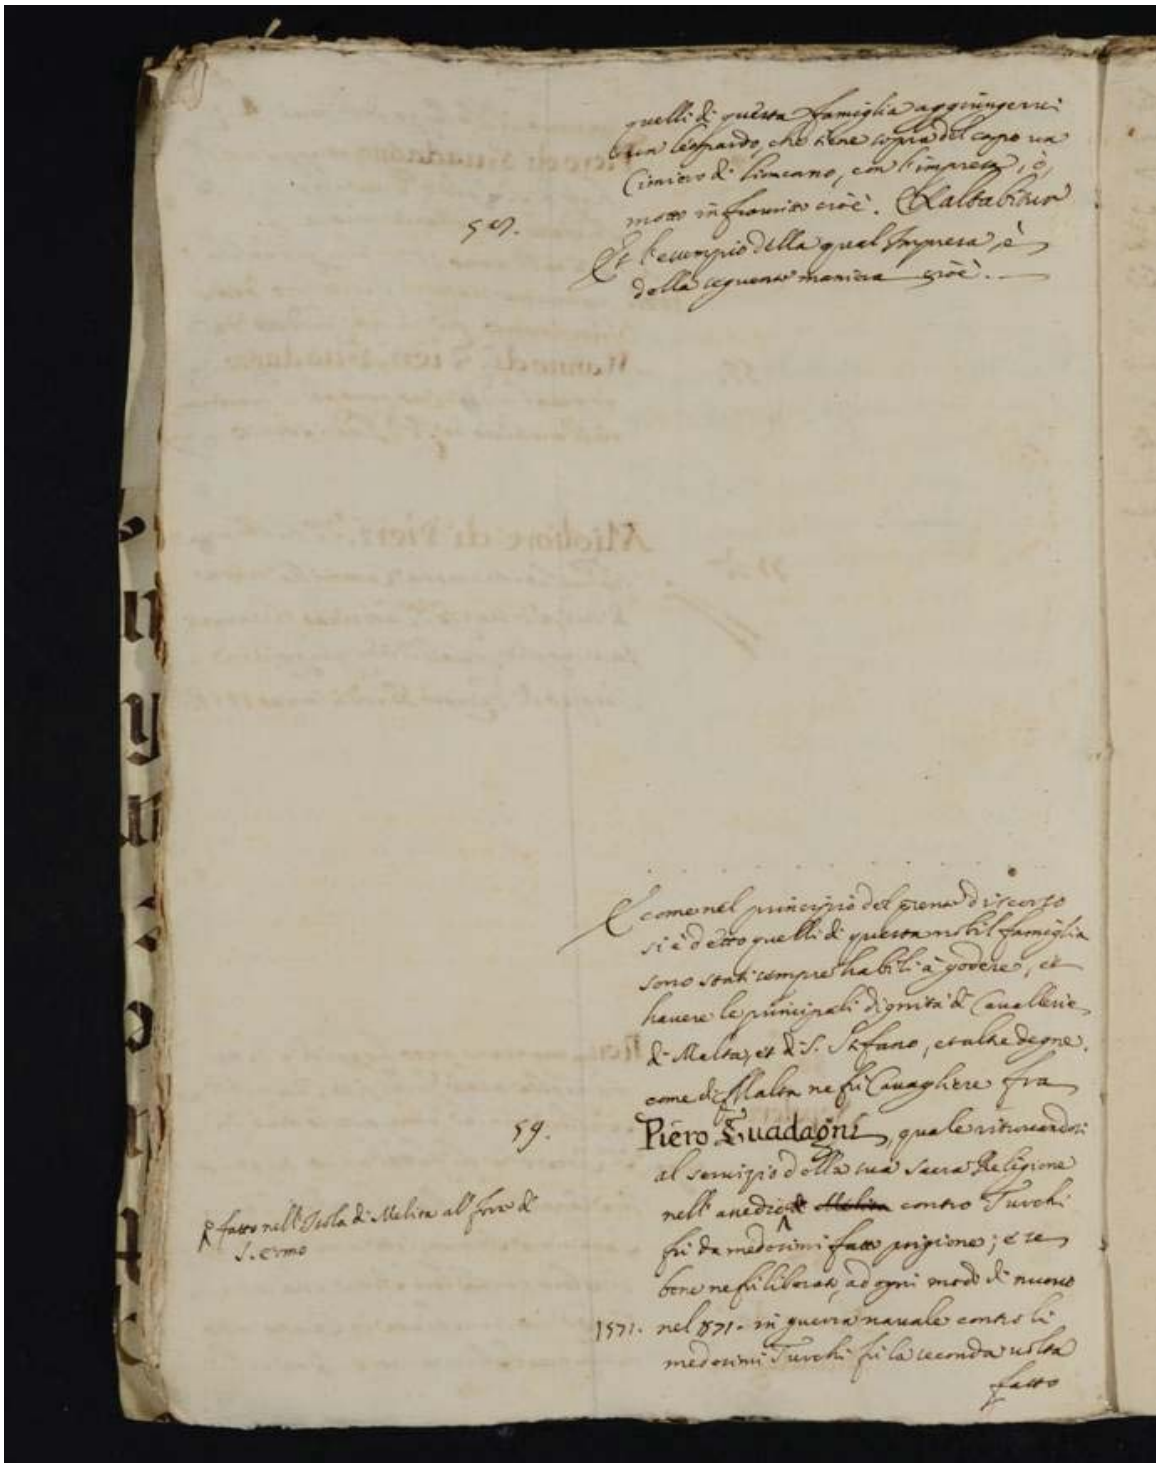 quelli di questa famiglia aggiungervi
un leopardo, che tiene sopra del capo un
Cimiero di liocorno, con l'impresa, ò,
motto infrascritto cioè. Exaltabitur
58.
Et l'esempio della qual Impresa, è
della seguente maniera cioè.
E come nel principio del presente discorso
si è detto quelli di questa nobil famiglia
sono stati sempre habili à godere, et
havere le principali dignità di Cavallerie
di Malta, et di S. Stefano, et altre degne.
come di Malta ne fù Cavagliere fra
59.
Piero Guadagni, quale ritrovandosi
al servizio della sua Sacra Religione
nell' assedio di Melita contro Turchi
fatto nell' Isola di Melita al forte di
S. Ermo
fù da medesimi fatto prigione; e se
bene ne fù liberato, ad ogni modo di nuovo
1571. nel 1571. in guerra navale contro li
medesimi Turchi fù la seconda volta
fatto